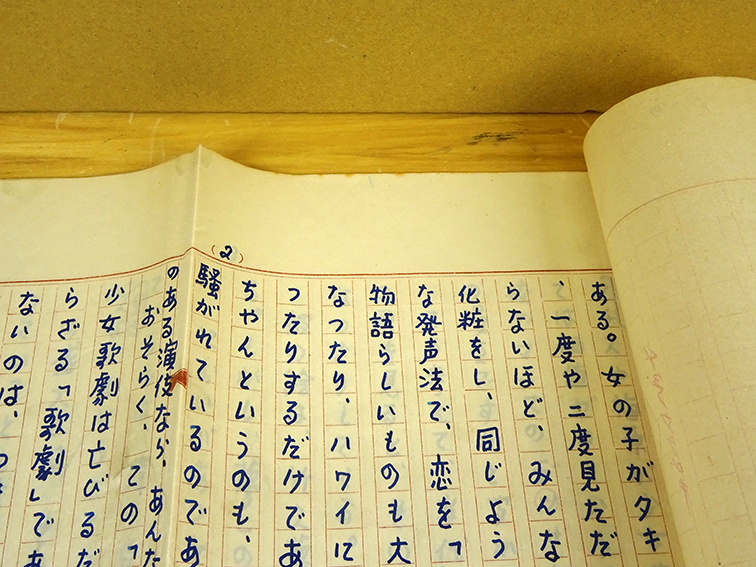 ある。女の子がタキ
、一度や二度見ただ
らないほど、みんな
化粧をし、同じよう
な発声法で、恋を
物語らしいものも大
なつたり、ハワイに
つたりするだけであ
ちやんというのも、
(2)
騒がれているのであ
のある演伎なら、あんた
おそらく、この「
少女歌劇は亡びるだ
らざる「歌劇」であ
ないのは、